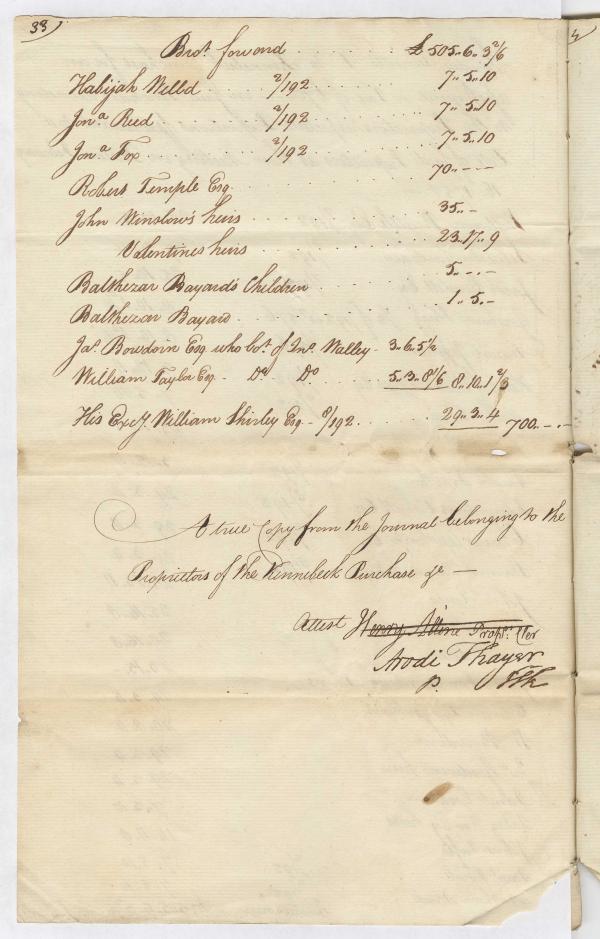 33
Brot. forward £ 505..6..3 2/6
Habijah Welld 2/192 7..5..10
Jona. Reed 2/192 7..5..10
Jona. Fox 2/192 7..5..10
Robert Temple Esq. 70..-.-
John Winslow's heirs 35..-
Valentines heirs 23..17..9
Balthezar Bayard's Children 5..-.-
Balthezar Bayard 1..5..-
Jas. Bowdoin Esq who bot. of Jno. Walley - 3..6..5 1/2
William Taylor Esq - Do. Do 5..3..8 1/6 8..10..1 2/3
His Excy. William Shirley Esq - 8/192 29..3..4 700..-.-
A true Copy from the Journal belonging to the
Proprietors of the Kennebeck Purchase &c —
Attest Henry Alline Proprs. Cler
Arodi Thayer
P. Clk